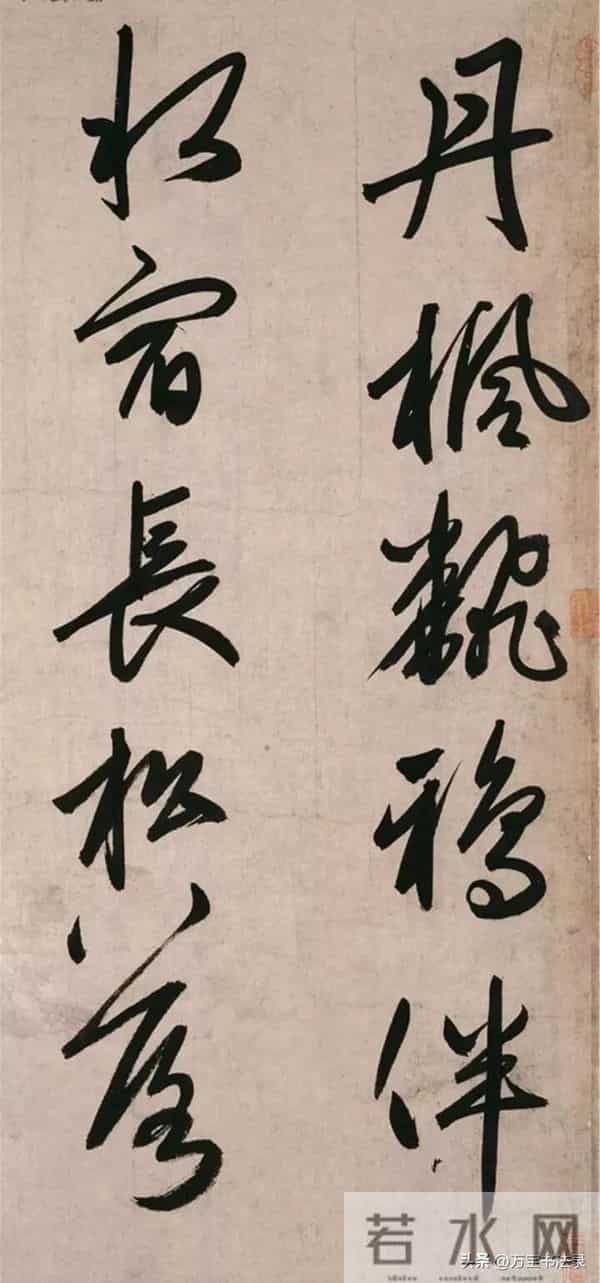 丹楓飜鴉伴
水宿長松落
若水网
头条 @万里书法录